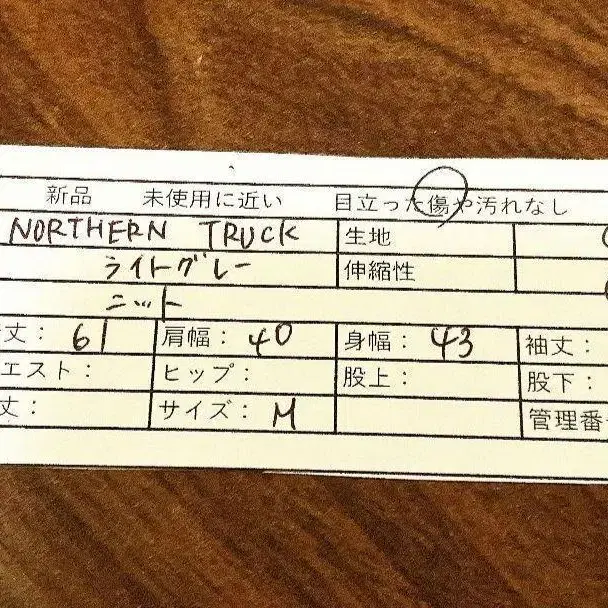 新品 未使用に近い 目立った傷や汚れなし
NORTHERN TRUCK 生地
ライトグレー 伸縮性
ニット
丈： 61 肩幅： 40 身幅： 43 袖丈：
エスト： ヒップ： 股上： 股下：
丈： サイズ： M 管理番